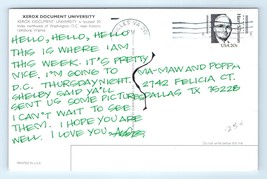 XEROX DOCUMENT UNIVERSITY
XEROX DOCUMENT UNIVERSITY is located 35
miles northwest of Washington D.C. near historic
Leesburg, Virginia
USA 20c
HELLO, HELLO, HELLO
THIS IS WHERE I AM
THIS WEEK. IT'S PRETTY
NICE. I'M GOING TO
D.C. THURSDAY NIGHT.
SHELBY SAID YA'LL
SENT US SOME PICTURES
I CAN'T WAIT TO SEE
THEM. I HOPE YOU ARE
WELL. I LOVE YOU
MA-MAW AND POPPA
2742 FELICIA CT.
DALLAS TX 75228